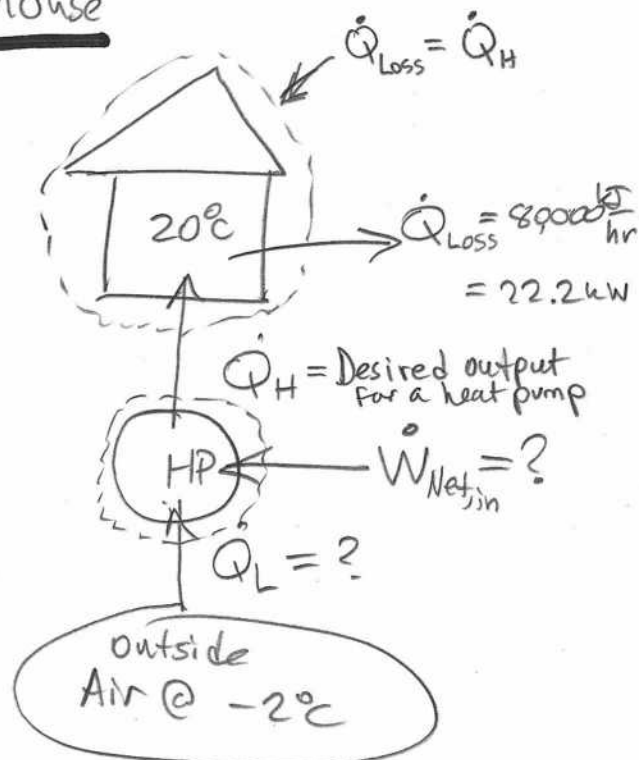 House
Q̇Loss = Q̇H
20°C
Q̇Loss = 80,000 kJ/hr
= 22.2 kW
Q̇H = Desired output
for a heat pump
HP
ẆNet,in = ?
Q̇L = ?
outside
Air @ -2°C